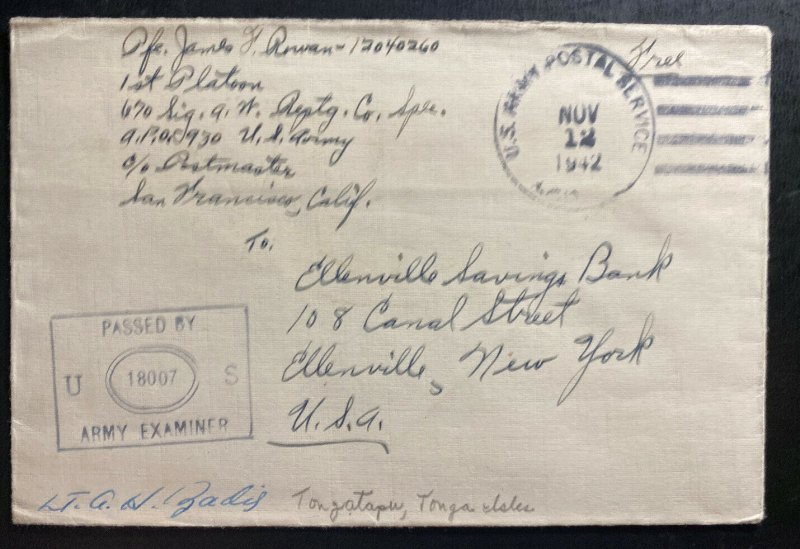 Pfc. James F. Rowan - 12040260
1st Platoon
670 Sig. A.W. Reptg. Co. Spec.
A.P.O. 930 U.S. Army
c/o Postmaster
San Francisco, Calif.
Free
U.S. ARMY POSTAL SERVICE
NOV
12
1942
To,
Ellenville Savings Bank
108 Canal Street
Ellenville, New York
U.S.A.
PASSED BY
U 18007 S
ARMY EXAMINER
Lt. A. H.
Tongatapu, Tonga Isles